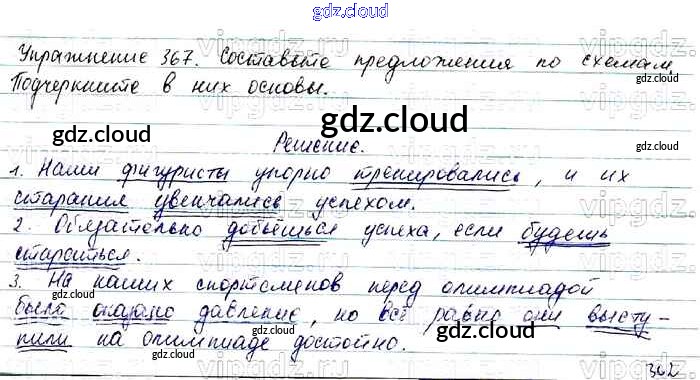 gdz.cloud
Упражнение 367. Составьте предложения по схемам.
Подчеркните в них основы.
gdz.cloud
gdz.cloud
gdz.cloud
Решение.
1. Нами фигуристы упорно тренировались, и их
старания увенчались успехом.
2. Обязательно добьёшься успеха, если будешь
gdz.cloud
стараться.
gdz.cloud
3. На наших спортсменов перед олимпиадой
было оказано давление, но всё равно они высту-
gdz.cloud
gdz.cloud
пили на олимпиаде достойно.
362